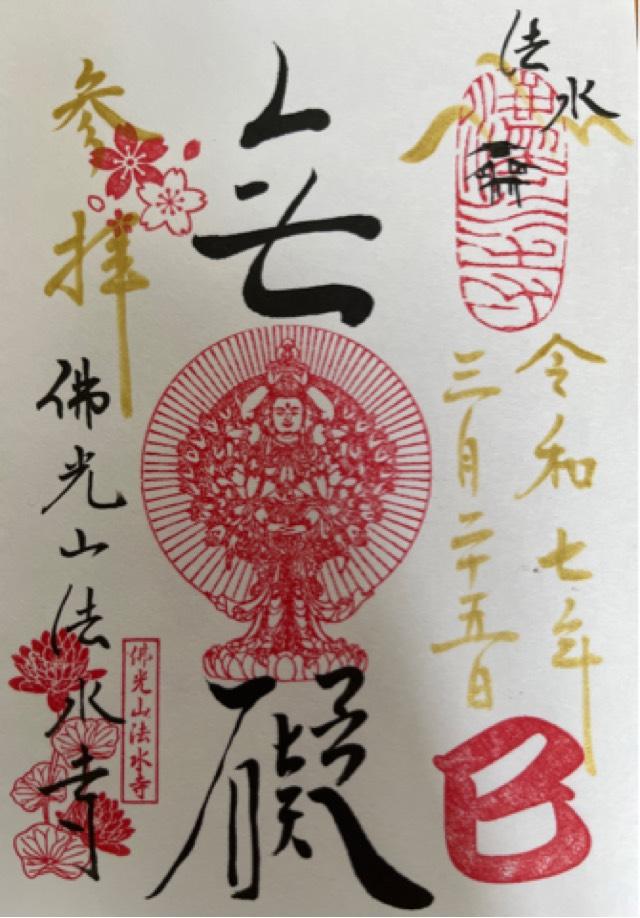 法水
令和七年
三月二十五日
巳
無礙
参拝
佛光山法水寺
佛光山法水寺